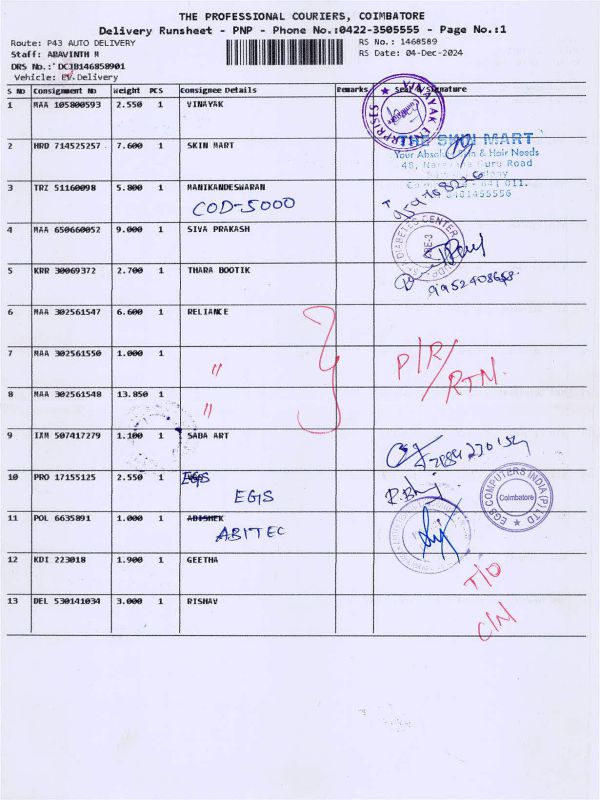 THE PROFESSIONAL COURIERS, COIMBATORE
Delivery Runsheet - PNP - Phone No.:0422-3505555 - Page No.:1
Route: P43 AUTO DELIVERY
RS No.: 1468589
Staff: ARAVINTH M
RS Date: 04-Dec-2024
DRS No.: DCJB146858901
Vehicle: EV Delivery
S No Consignment No Weight PCS Consignee Details Remarks Seal & Signature
1 MAA 105800593 2.550 1 VINAYAK
VINAYAK ENTERPRISES
2 HRD 714525257 7.600 1 SKIN MART
THE SKIN MART
Your Absolute Skin & Hair Needs
48, Narayana Guru Road
641 011.
3 TRZ 51160098 5.800 1 MANIKANDESWARAN
COD-5000
4 MAA 650660052 9.000 1 SIVA PRAKASH
DIABETES CENTER
5 KRR 30069372 2.700 1 THARA BOOTIK
6 MAA 302561547 6.600 1 RELIANCE
7 MAA 302561550 1.000 1 "
P/R/
RTN.
8 MAA 302561548 13.850 1 "
9 IXM 507417279 1.100 1 SABA ART
10 PRO 17155125 2.550 1 EGS
EGS
EGS COMPUTERS INDIA (P) LTD
Coimbatore
11 POL 6635891 1.000 1 ABISHEK
ABITEC
12 KDI 223018 1.900 1 GEETHA
T/O
13 DEL 530141034 3.000 1 RISHAV
C/N